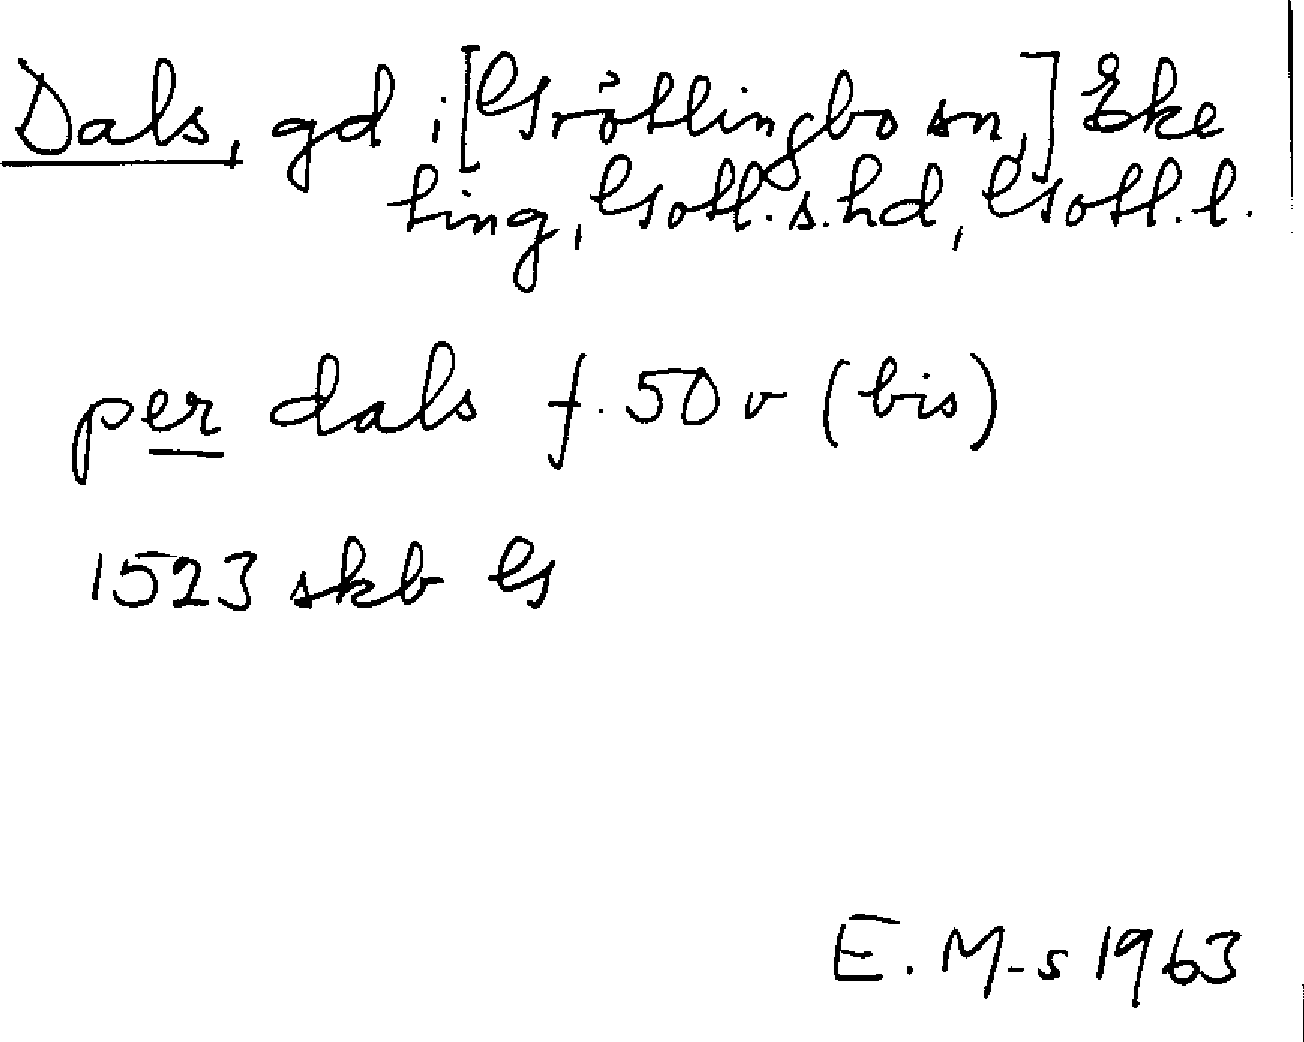 Dals, gd i [Grötlingbo sn,] Eke
ting, Gotl. s. hd, Gotl. l.
per dals f. 50 v (bis)
1523 skb G
E. M-s 1963